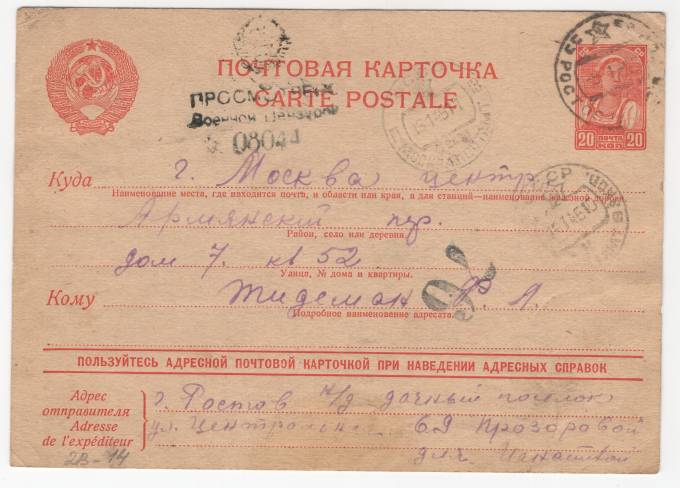 ПОЧТОВАЯ КАРТОЧКА
CARTE POSTALE
ПРОСМОТРЕНО
Военной Цензурой
08044
20 ПОЧТА КОП 20
Куда г. Москва центр
Наименование места, где находится почта, и области или края, а для станций—наименование железной дороги.
Армянский пер.
Район, село или деревня.
дом 7. кв 52
Улица, № дома и квартиры.
Кому Тидеман Р. Л.
Подробное наименование адресата.
ПОЛЬЗУЙТЕСЬ АДРЕСНОЙ ПОЧТОВОЙ КАРТОЧКОЙ ПРИ НАВЕДЕНИИ АДРЕСНЫХ СПРАВОК
Адрес
отправителя
Adresse
de l'expéditeur
г. Ростов н/д дачный поселок
ул. Центральная 69 Прозоровой
для
2В-14